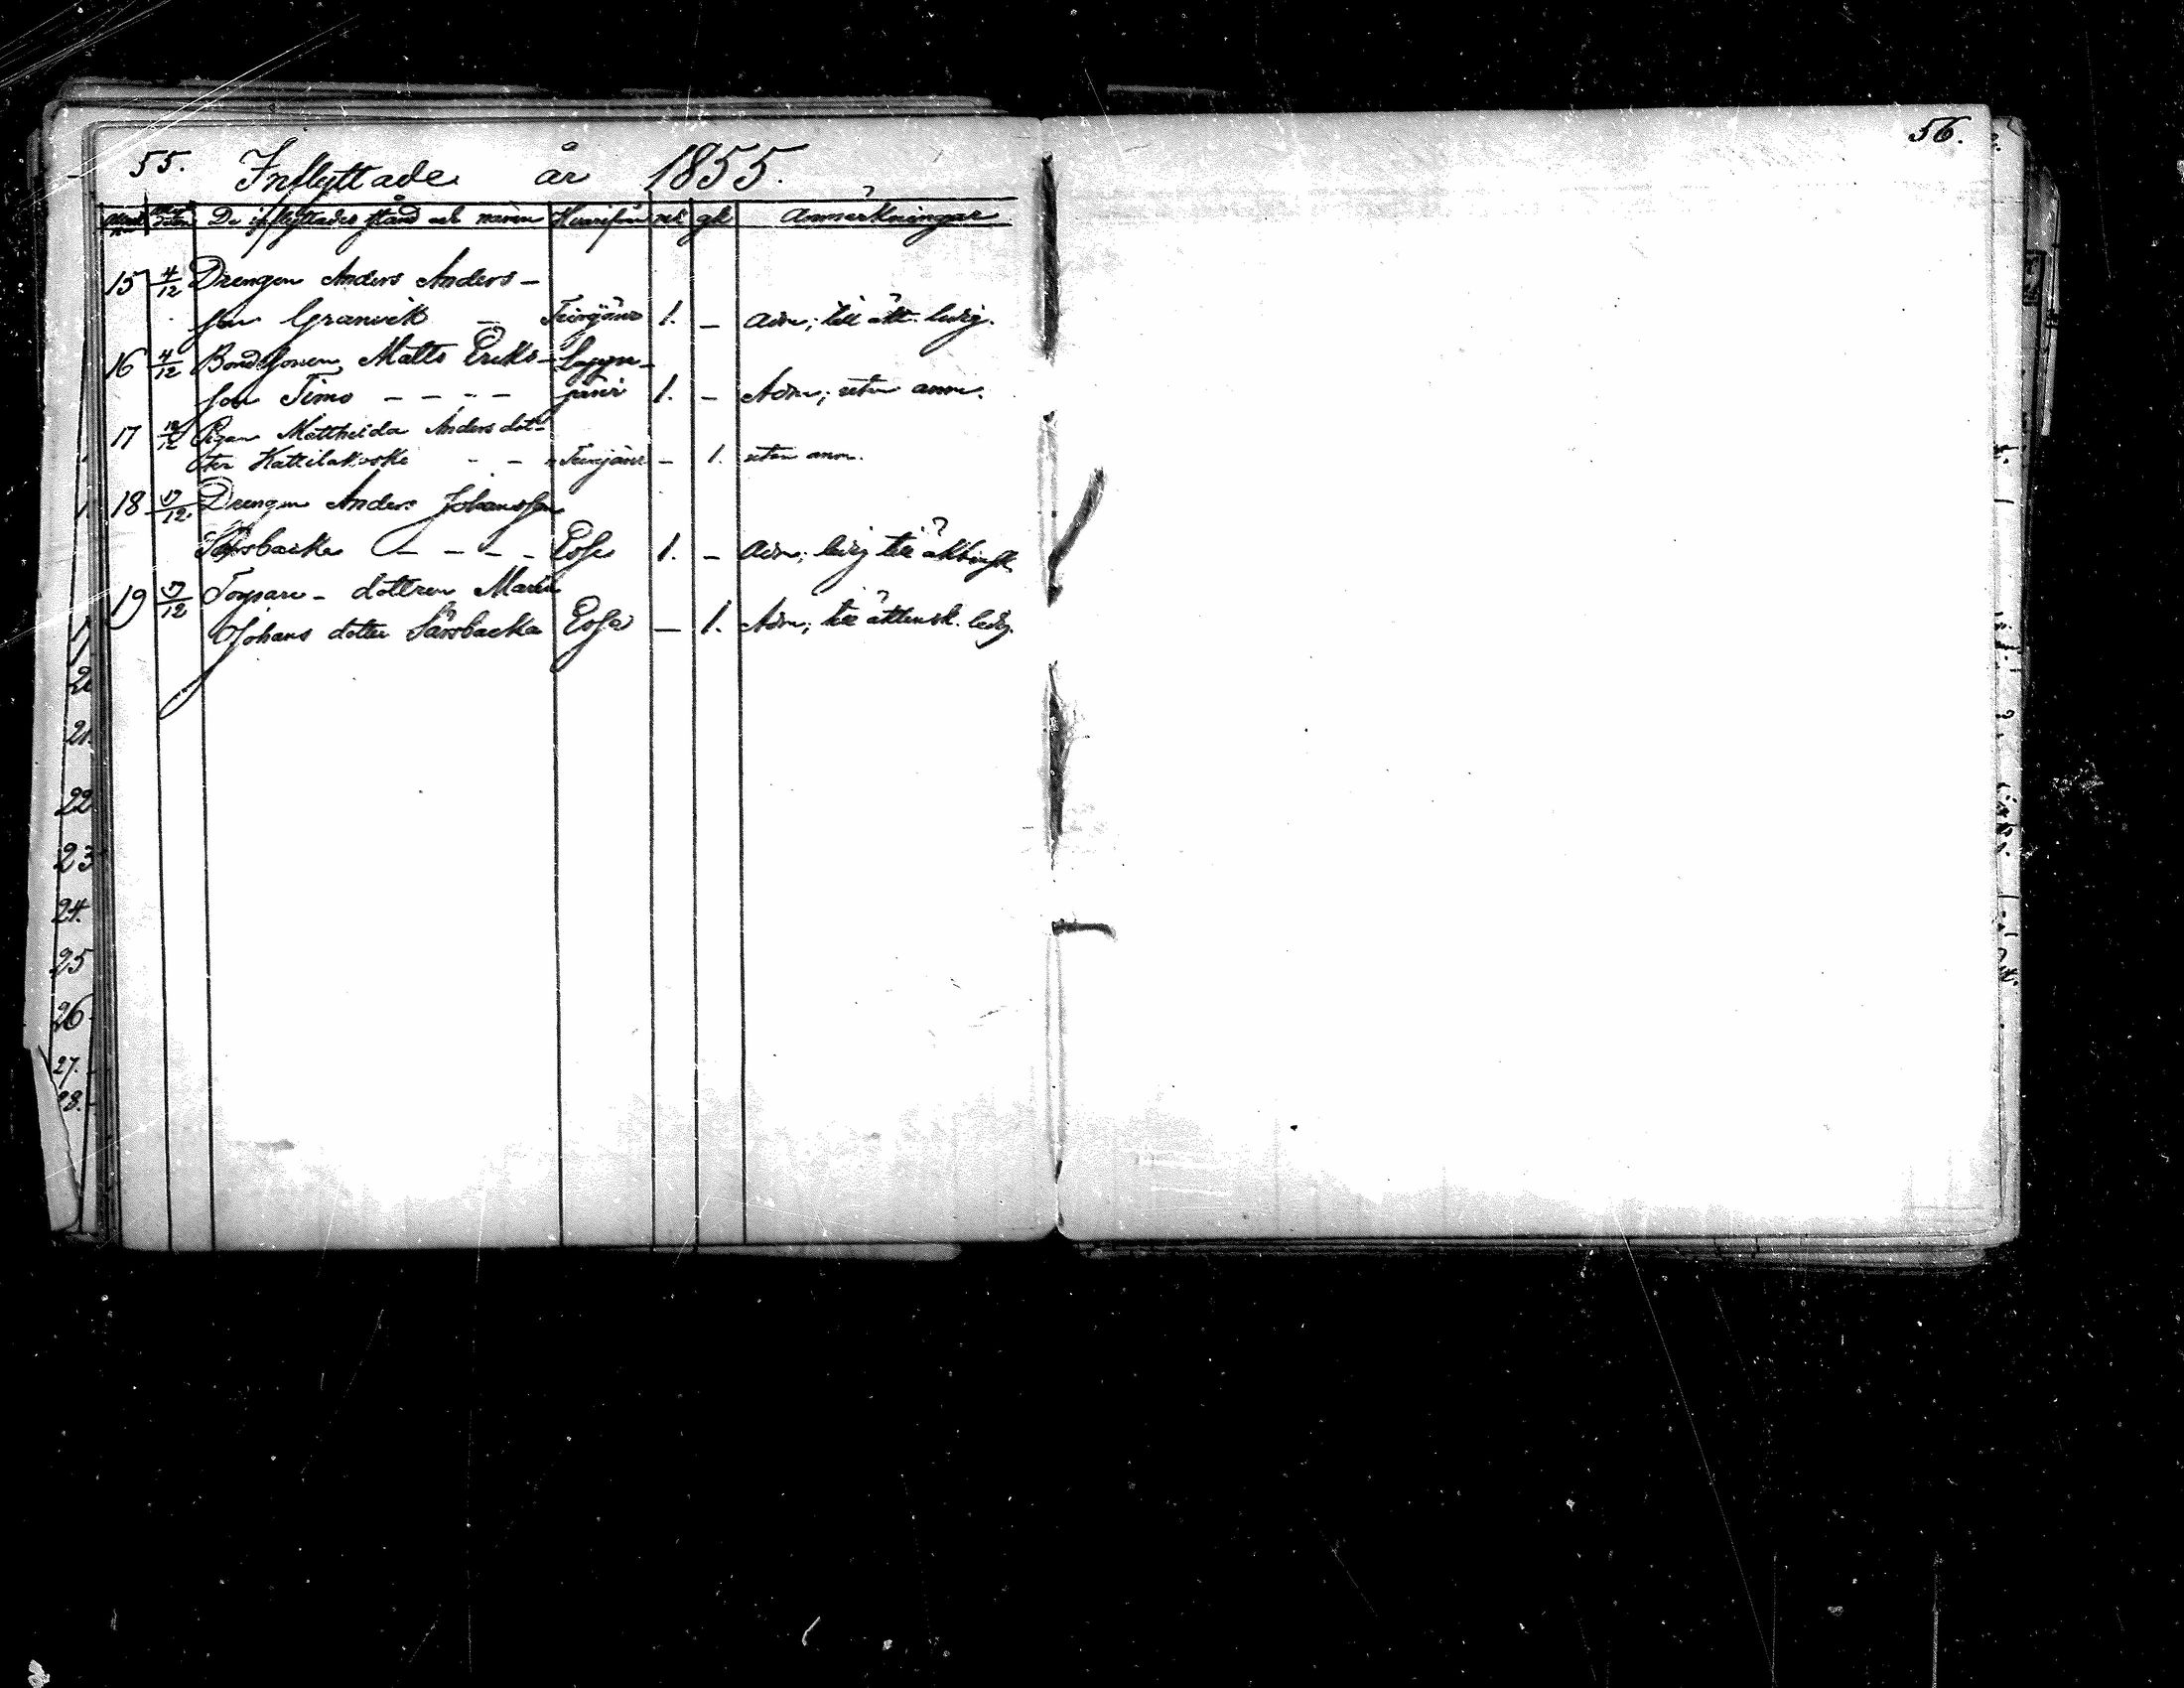 55. Inflyttade år 1855.
De inflyttades stånd och namn Hvarifrån mk gk Anmärkningar
15 4/12 Drengen Anders Anders-
son Granvik – Terijärv 1. – Adm; till äkt. ledig.
16 4/12 Bondesonen Matts Eriks- Lappa-
son Timo – – – – järvi 1. – Adm; utan anm.
17 12 Pigan Mattheida Anders dot-
ter Kattilakoski – – Terijärv – 1. utan anm.
18 /12 Drengen Anders Johansson
Särsbacka – – – – Esse 1. – Adm; ledig till äktensk.
19 /12 Torpare-dottren Maria
Johans dotter Särsbacka Esse – 1. Adm; till äktensk. ledig.
56.
20
21.
22
23
24.
25
26
27.
28.